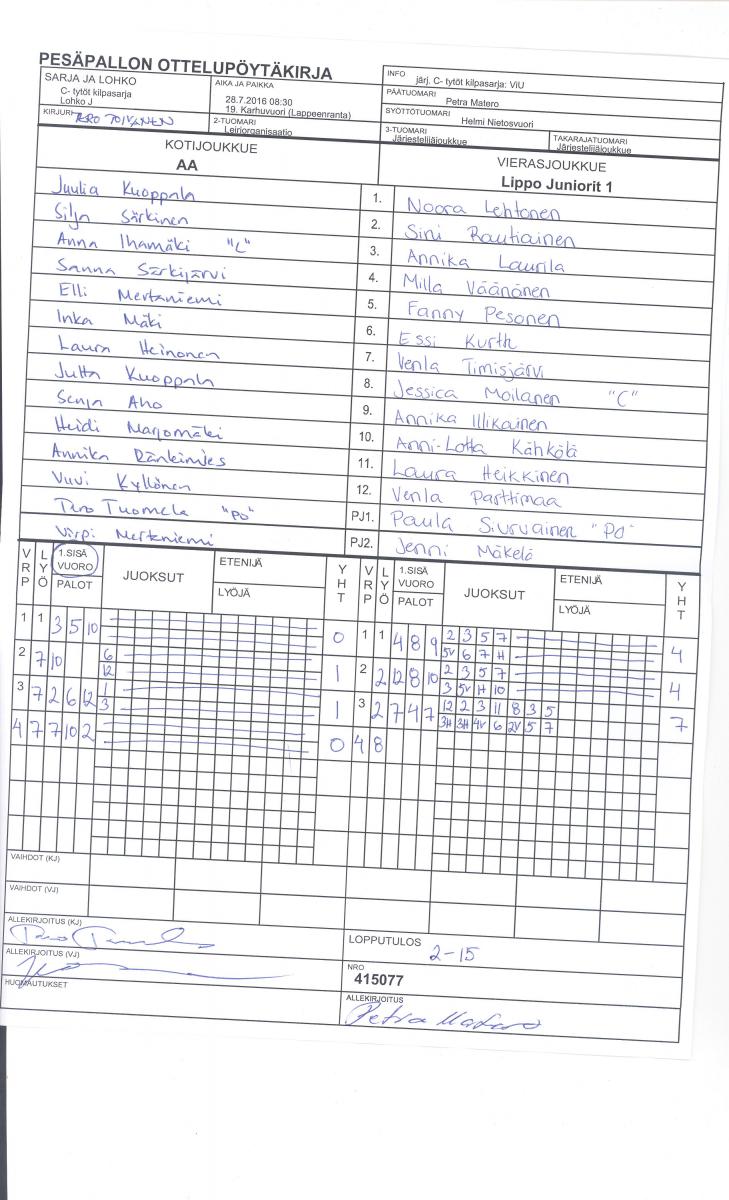 PESÄPALLON OTTELUPÖYTÄKIRJA
SARJA JA LOHKO
C- tytöt kilpasarja
Lohko J
AIKA JA PAIKKA
28.7.2016 08:30
19. Karhuvuori (Lappeenranta)
INFO järj. C- tytöt kilpasarja: ViU
PÄÄTUOMARI
Petra Matero
SYÖTTÖTUOMARI
Helmi Nietosvuori
KIRJURI TERO TOIVANEN
2-TUOMARI
Leiriorganisaatio
3-TUOMARI
Järjestelijäjoukkue
TAKARAJATUOMARI
Järjestelijäjoukkue
KOTIJOUKKUE
AA
VIERASJOUKKUE
Lippo Juniorit 1
Juulia Kuoppala 1. Noora Lehtonen
Silja Särkinen 2. Sini Rautiainen
Anna Ihamäki "C" 3. Annika Laurila
Sanna Särkijärvi 4. Milla Väänänen
Elli Mertaniemi 5. Fanny Pesonen
Inka Mäki 6. Essi Kurth
Laura Heinonen 7. Venla Timisjärvi
Jutta Kuoppala 8. Jessica Moilanen "C"
Senja Aho 9. Annika Illikainen
Heidi Marjomäki 10. Anni-Lotta Kähkölä
Annika Ränkimies 11. Laura Heikkinen
Vuvi Kyllönen 12. Venla Parttimaa
Tero Tuomela "PO" PJ1. Paula Siurvainen "PO"
Virpi Mertaniemi PJ2. Jenni Mäkelä
VRP LYÖ 1.SISÄ VUORO PALOT JUOKSUT ETENIJÄ LYÖJÄ YHT
VRP LYÖ 1.SISÄ VUORO PALOT JUOKSUT ETENIJÄ LYÖJÄ YHT
1 1 3 5 10 0
1 1 4 8 9 2 3 5 7 4
5V 6 7 H
2 7 10 6 1
12
2 2 12 8 10 2 3 5 7 4
3 5V H 10
3 7 2 6 12 1 1
3
3 2 7 4 7 12 2 3 11 8 3 5 7
3H 3H 4V 6 2V 5 7
4 7 7 10 2 0
4 8
VAIHDOT (KJ)
VAIHDOT (VJ)
ALLEKIRJOITUS (KJ)
ALLEKIRJOITUS (VJ)
HUOMAUTUKSET
LOPPUTULOS
2-15
NRO
415077
ALLEKIRJOITUS
Petra Matero